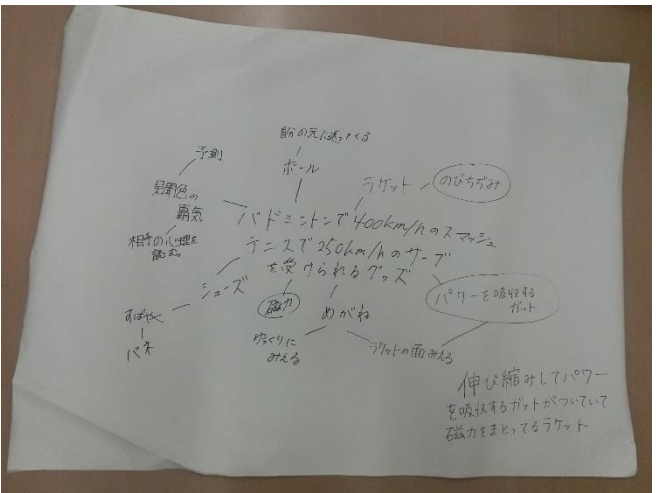 自分の元に返ってくる
ボール
予測
見聞色の
覇気
相手の心理を
読む。
ラケット
のびちぢみ
バドミントンで400km/hのスマッシュ
テニスで250km/hのサーブ
を受けられるグッズ
シューズ
すばやく
バネ
磁力
ゆっくりに
みえる
めがね
ラケットの面みえる
パワーを吸収する
ガット
伸び縮みしてパワー
を吸収するガットがついていて
磁力をまとってるラケット